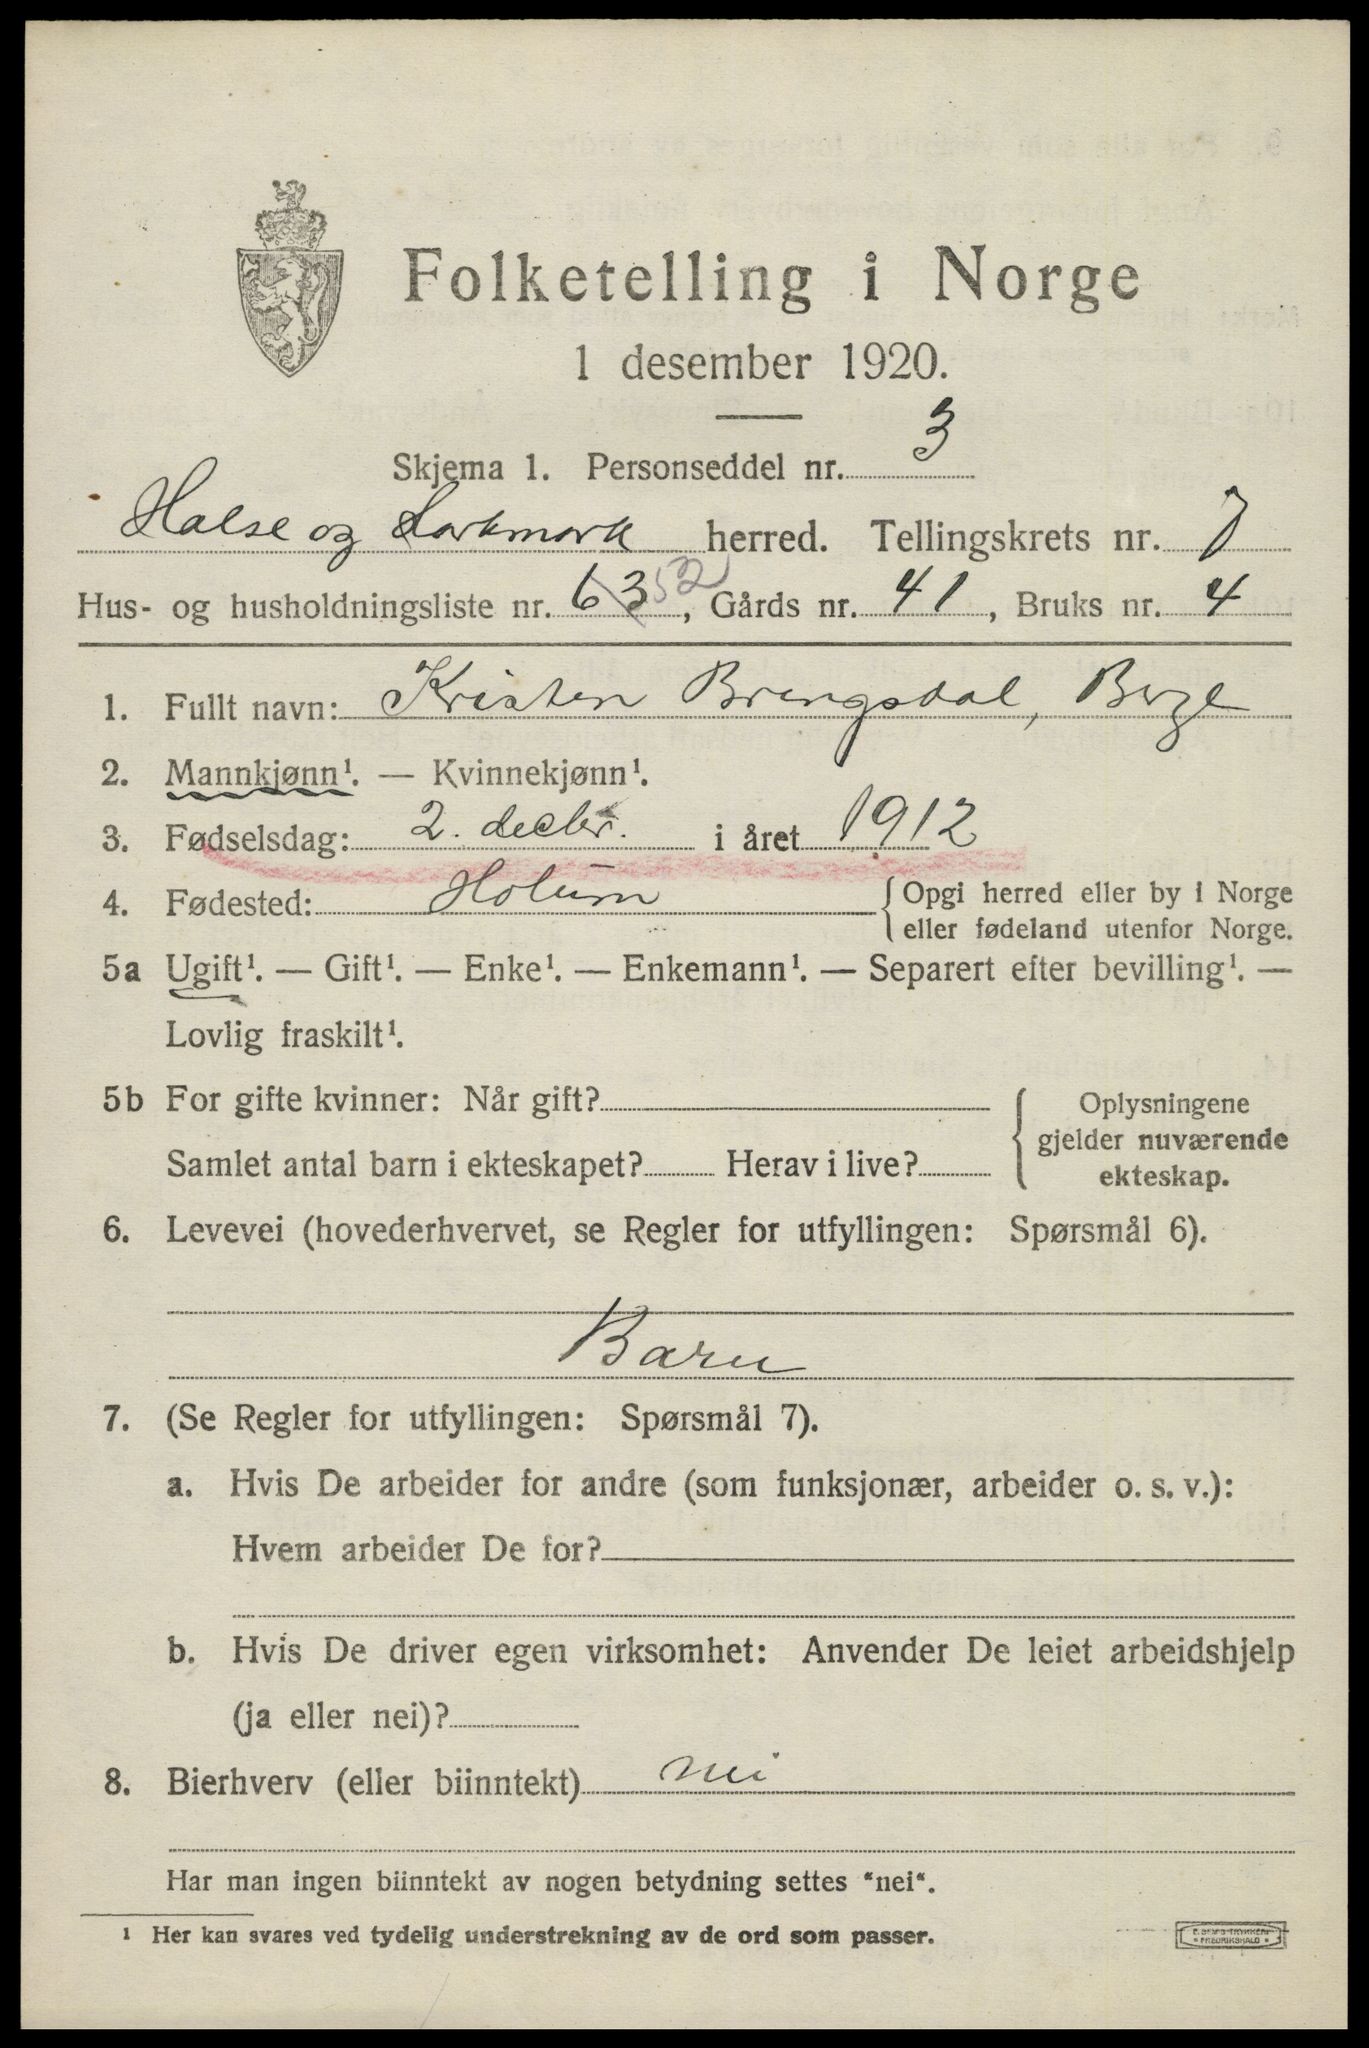 Folketelling i Norge
1 desember 1920.
Skjema 1. Personseddel nr. 3
Halse og Harkmark herred. Tellingskrets nr. 7
Hus- og husholdningsliste nr. 63 52, Gårds nr. 41, Bruks nr. 4
1. Fullt navn: Kristen Bringsdal, Berge
2. Mannkjønn¹. — Kvinnekjønn¹.
3. Fødselsdag: 2. decbr. i året 1912
4. Fødested: Holum {Opgi herred eller by i Norge
eller fødeland utenfor Norge.
5a Ugift¹. — Gift¹. — Enke¹. — Enkemann¹. — Separert efter bevilling¹. —
Lovlig fraskilt¹.
5b For gifte kvinner: Når gift?
Samlet antal barn i ekteskapet? Herav i live?
{Oplysningene
gjelder nuværende
ekteskap.
6. Levevei (hovederhvervet, se Regler for utfyllingen: Spørsmål 6).
Barn
7. (Se Regler for utfyllingen: Spørsmål 7).
a. Hvis De arbeider for andre (som funksjonær, arbeider o. s. v.):
Hvem arbeider De for?
b. Hvis De driver egen virksomhet: Anvender De leiet arbeidshjelp
(ja eller nei)?
8. Bierhverv (eller biinntekt) nei
Har man ingen biinntekt av nogen betydning settes "nei".
¹ Her kan svares ved tydelig understrekning av de ord som passer.
FREDRIKSHALD